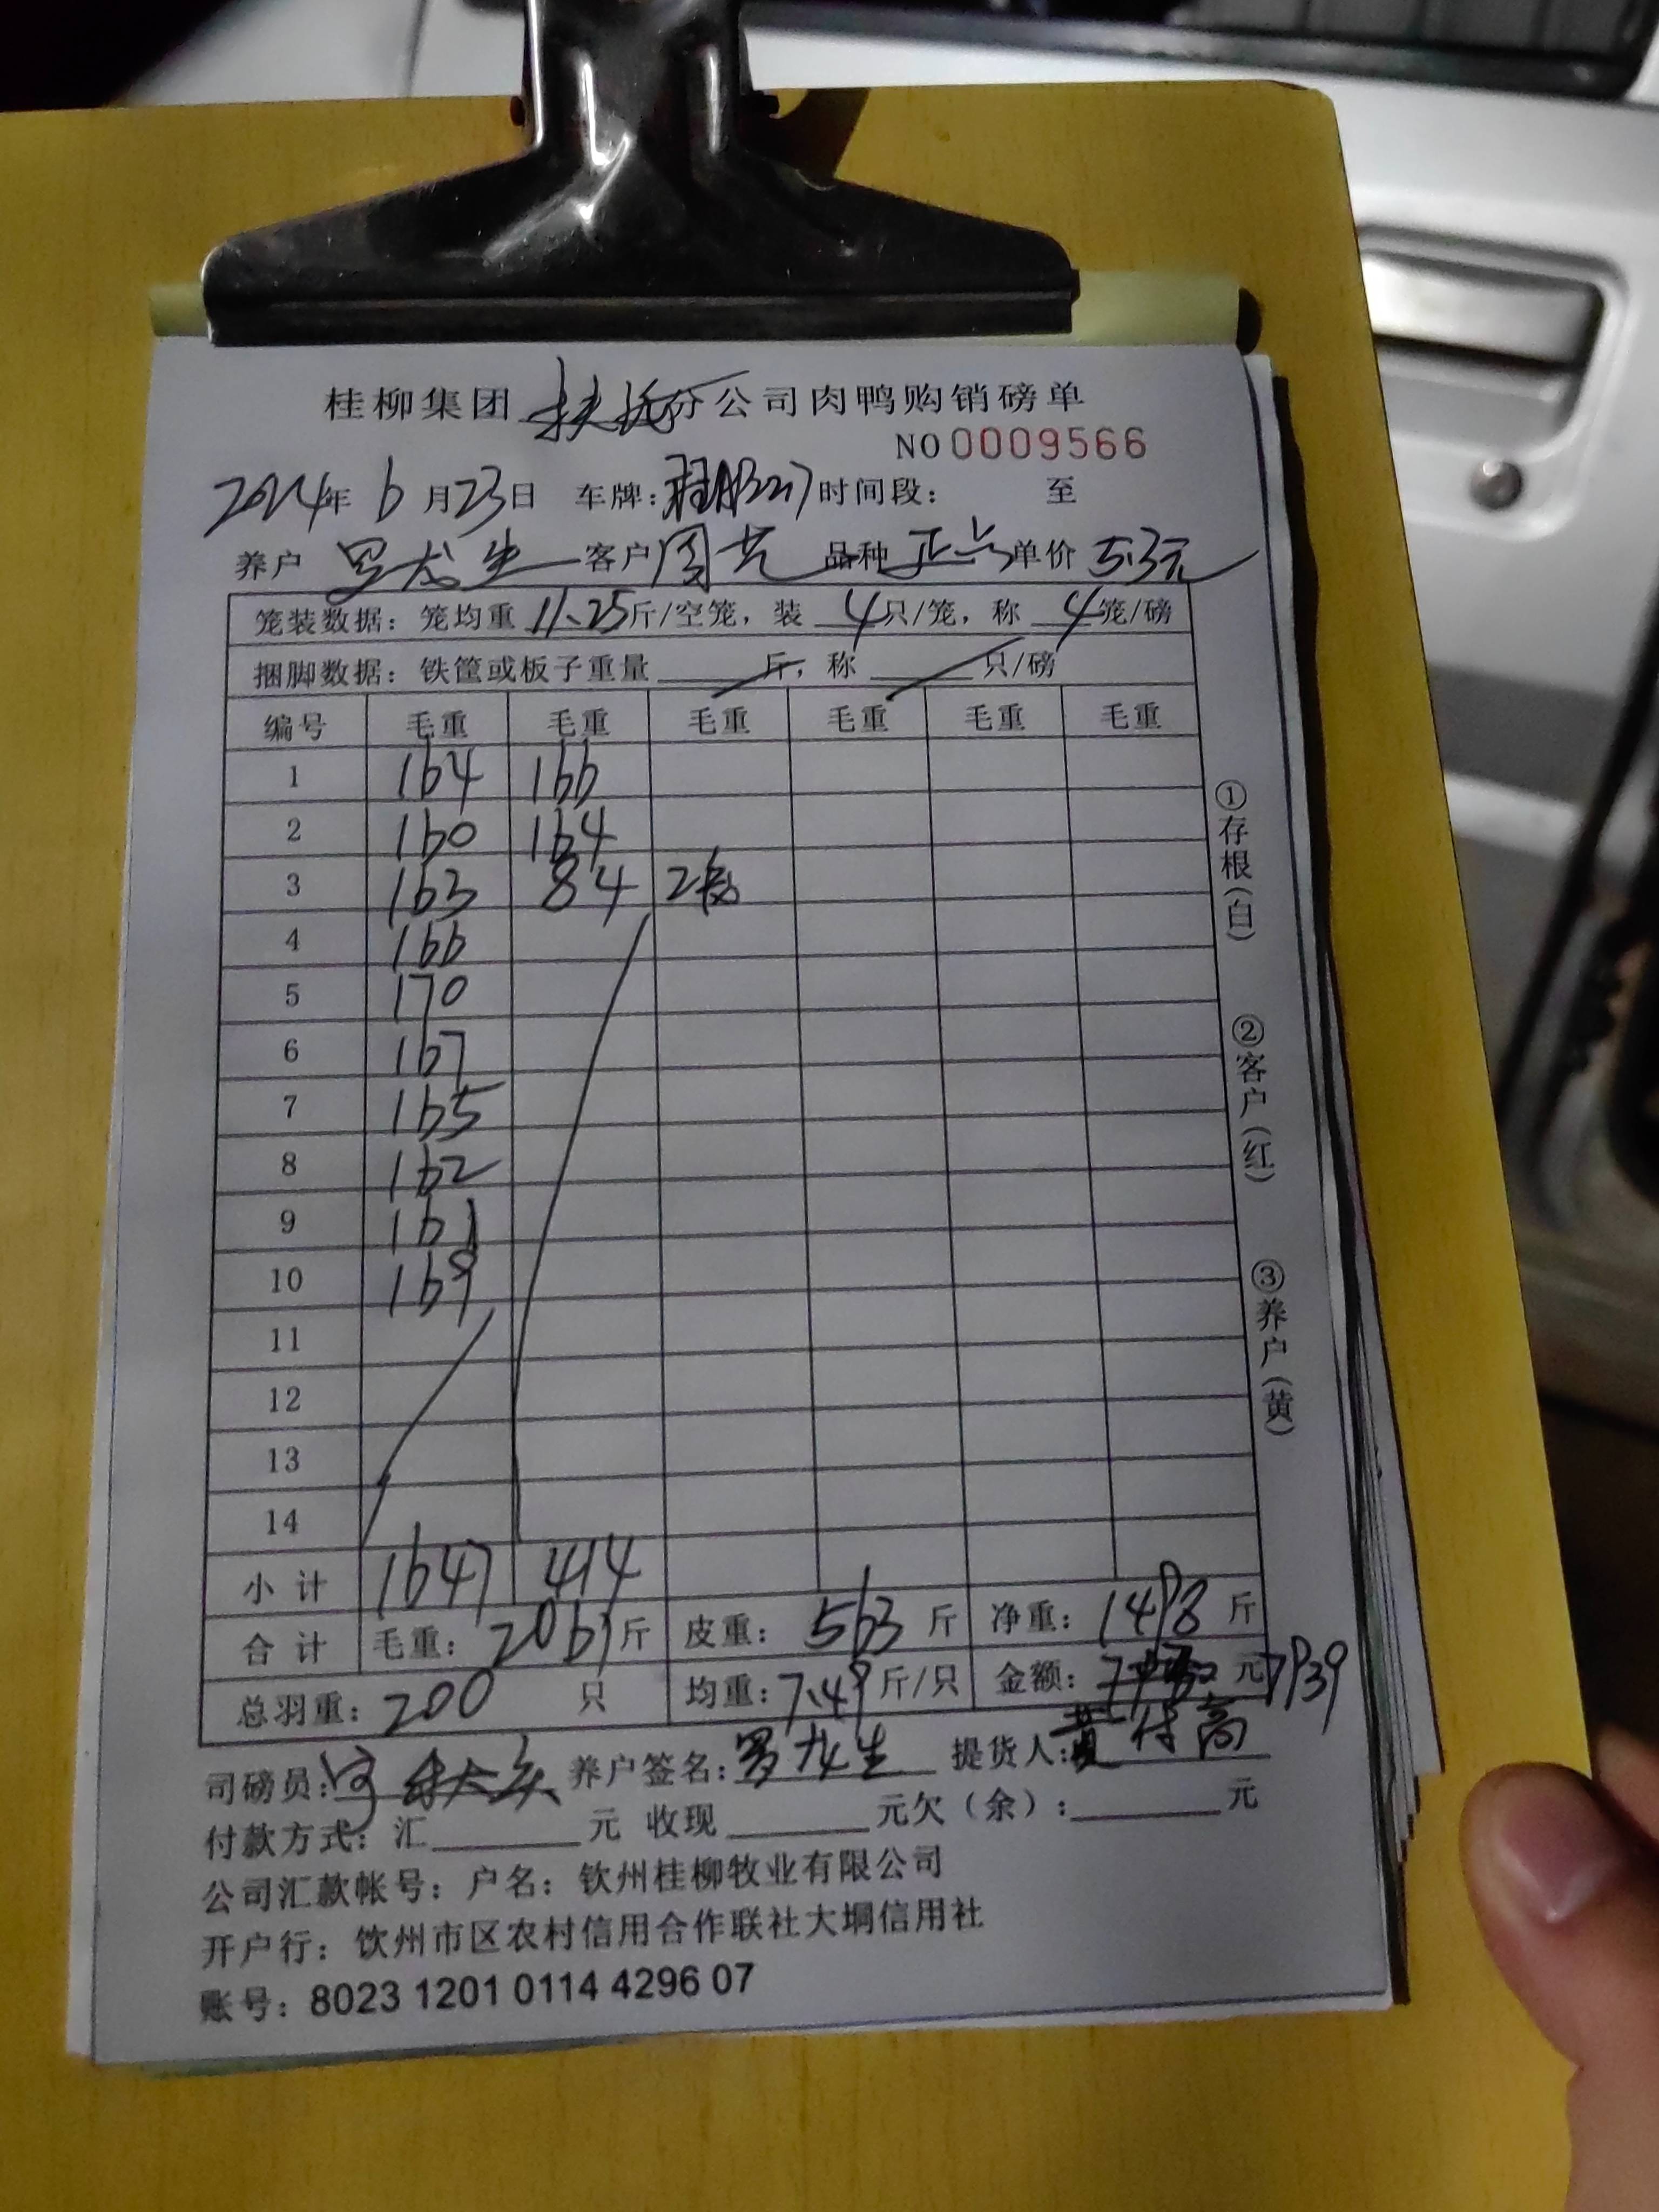 桂柳集团 扶拓分公司肉鸭购销磅单
NO 0009566
2024年 6月23日 车牌: 时间段: 至
养户 罗龙生 客户 周艺 品种 正 单价 5.3元
笼装数据: 笼均重 11.25斤/空笼, 装 4只/笼, 称 4笼/磅
捆脚数据: 铁筐或板子重量 斤, 称 只/磅
编号 毛重 毛重 毛重 毛重 毛重 毛重
1 164 166
2 160 164
3 163 84 2
4 166
5 170
6 167
7 165
8 162
9 161
10 169
11
12
13
14
小计 1647 414
合计 毛重: 2061斤 皮重: 563斤 净重: 1498斤
总羽重: 200 只 均重: 7.49斤/只 金额: 元 7939
司磅员: 养户签名: 罗龙生 提货人: 黄 高
付款方式: 汇 元 收现 元欠(余): 元
公司汇款帐号: 户名: 钦州桂柳牧业有限公司
开户行: 饮州市区农村信用合作联社大垌信用社
账号: 8023 1201 0114 4296 07
①存根(白) ②客户(红) ③养户(黄)